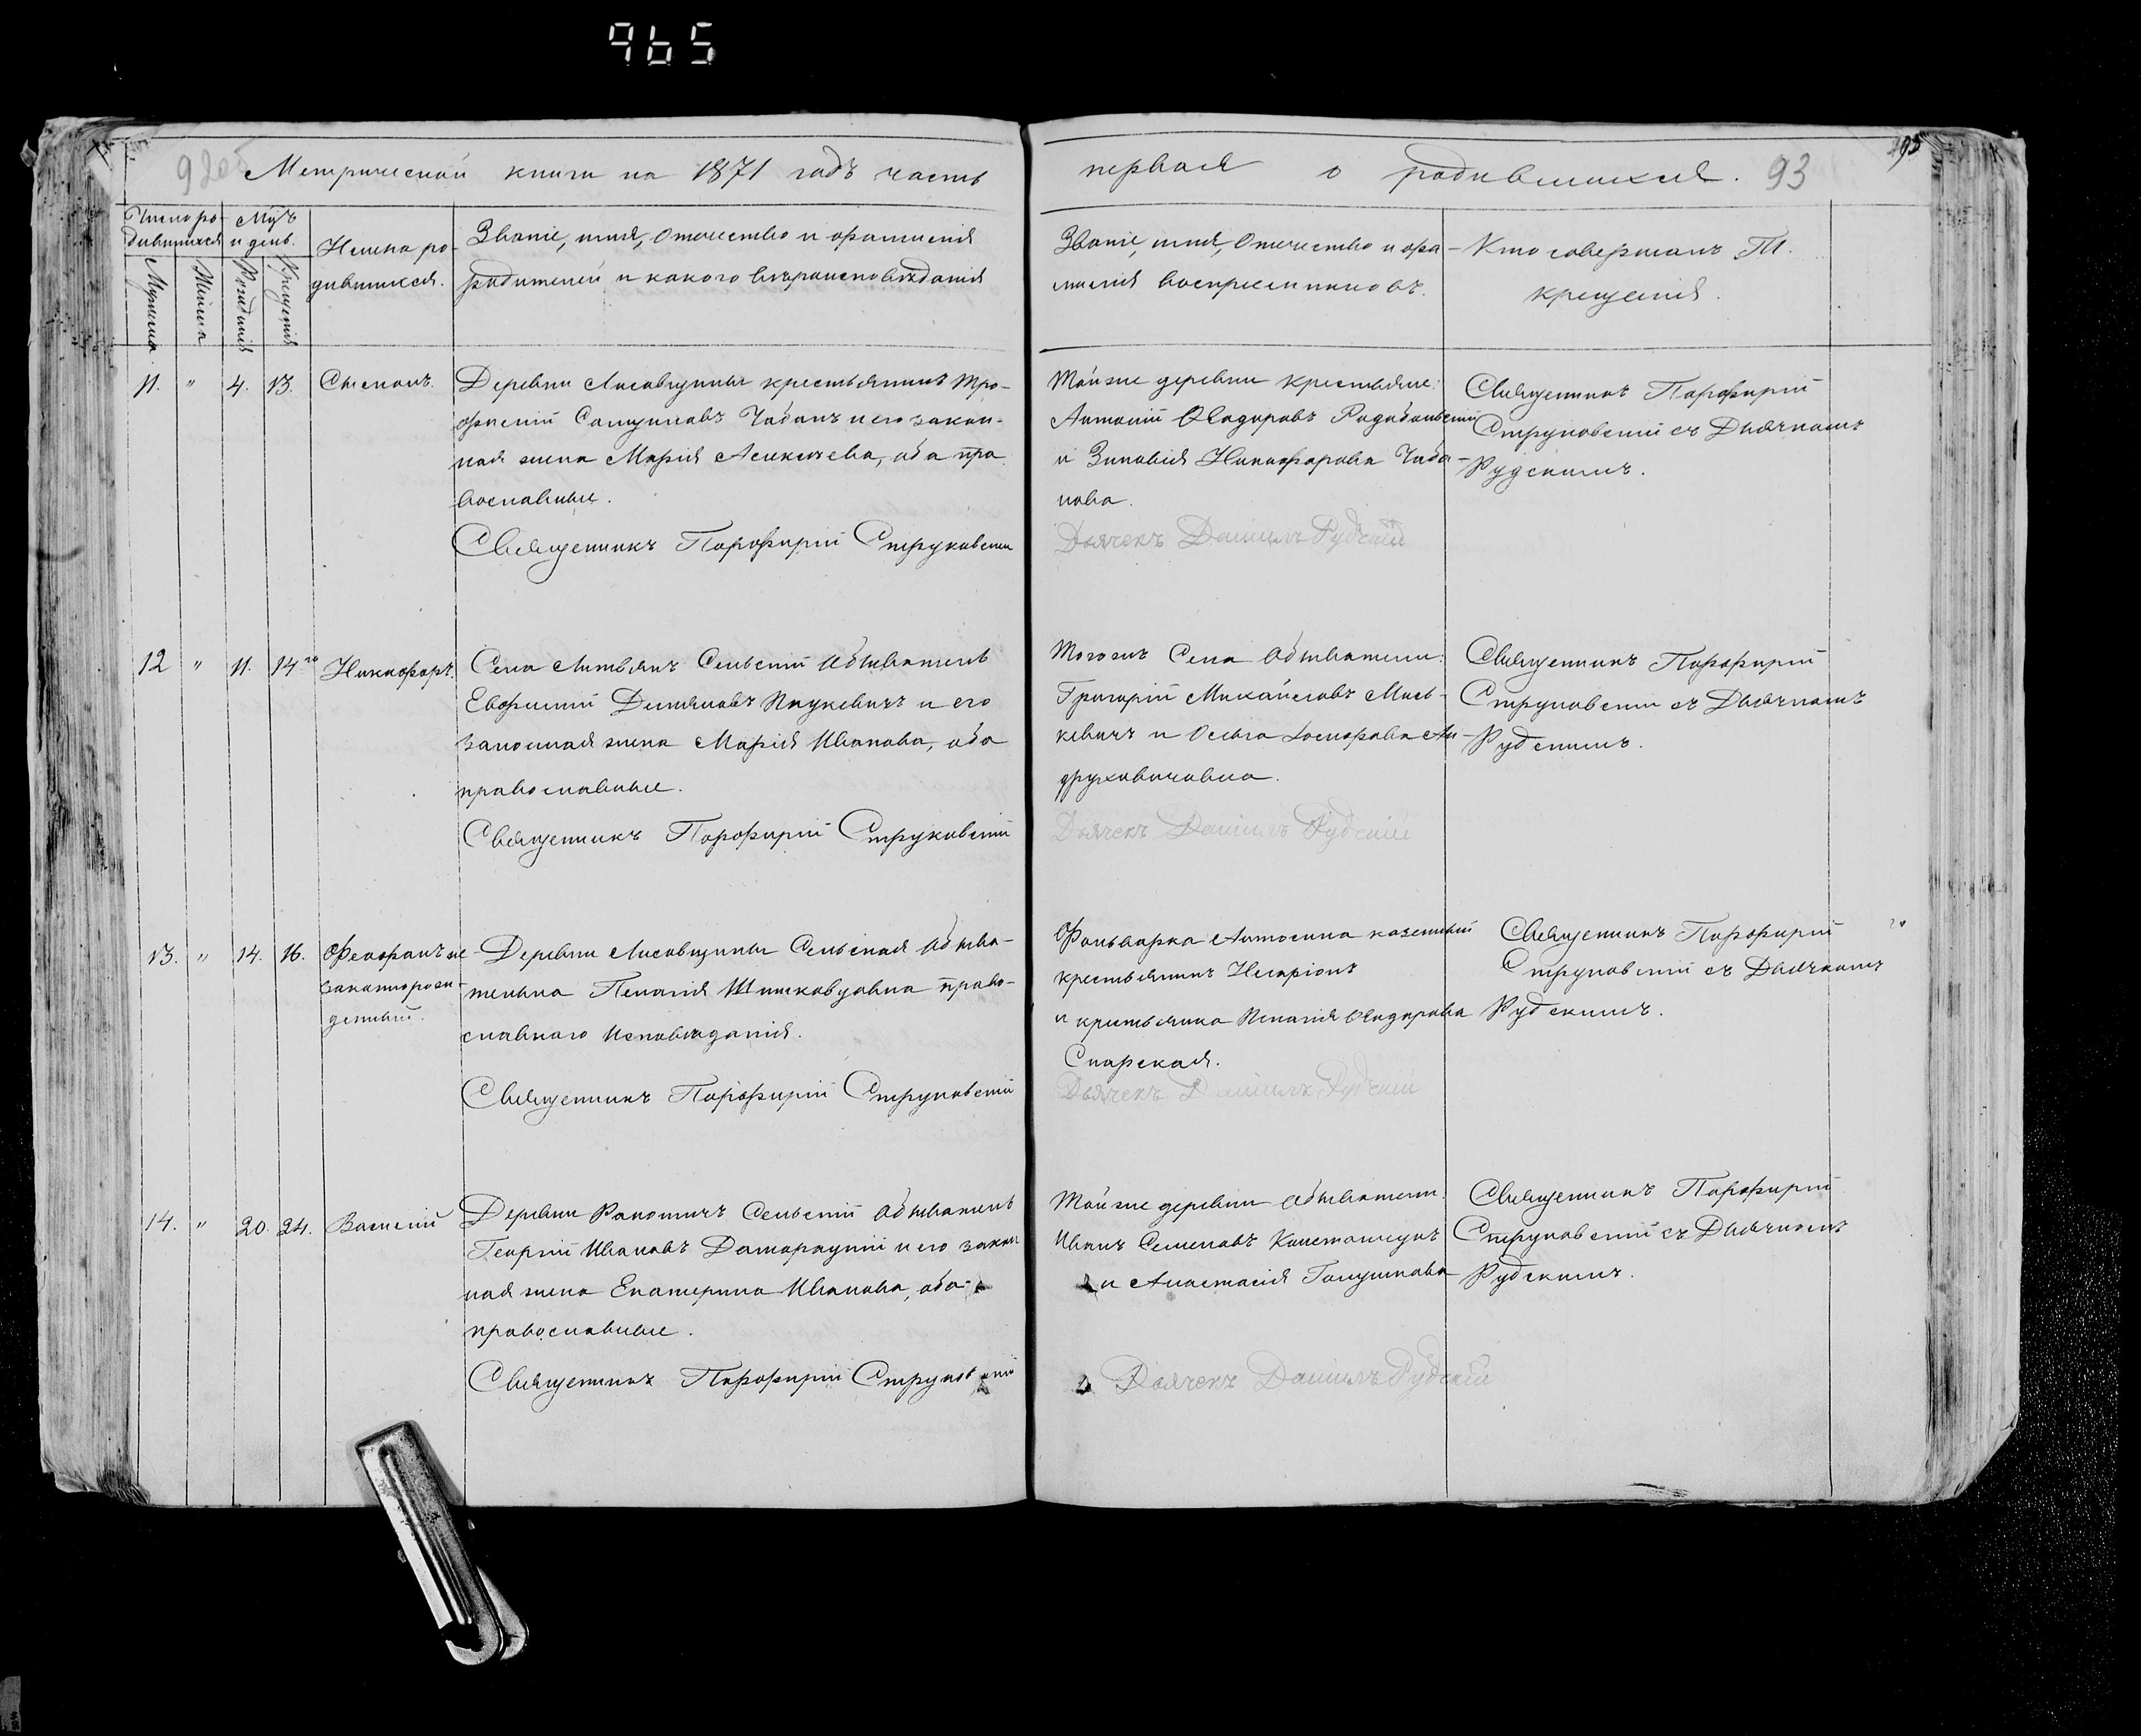 965
92об Метрической книги на 1871 годъ часть
первая о родившихся. 93
95
Число ро-
дившихся
Мужеска.
Женска
Мцъ
и день.
Рожденія
Крещенія
Имена ро-
дившихся.
Званіе, имя, отчество и фамилія
родителей и какого вѣроисповѣданія
Званіе, имя, отчество и фа-
милія воспреемниковъ.
Кто совершалъ Т.
крещенія.
11. " 4. 13. Степанъ.
Деревни Лисовщины крестьянинъ Тро-
фимій Самуиловъ Чабанъ и его закон-
ная жена Марія Алексѣева, оба пра-
вославные.
Священникъ Порфирій Струковскій
Тойже деревни крестьяне:
Антоній Ѳедоровъ
и Зиновія Никифорова Чаба-
нова.
Дьячекъ Даніилъ Рудскій
Священникъ Порфирій
Струковскій съ Дьячкомъ
Рудскимъ.
12 " 11. 14го Никифоръ.
Села Литвянъ Сельскій Обыватель
Евфимій Демяновъ и его
законная жена Марія Иванова, оба
православные.
Священникъ Порфирій Струковскій
Тогожъ Села Обыватели:
Григорій Михайловъ Мись-
кевичъ и Ольга Ан-
друховичовна.
Дьячекъ Даніилъ Рудскій
Священникъ Порфирій
Струковскій съ Дьячкомъ
Рудскимъ.
13. " 14. 16. Феофанъ не
законнорож-
денный.
Деревни Лисовщины Сельская Обыва-
тельна Пелагія Шишковцовна право-
славнаго исповѣданія.
Священникъ Порфирій Струковскій
Фольварка Антосина казенный
крестьянинъ Иларіонъ
и крестьянка Пелагія Ѳедорова
Снарская.
Дьячекъ Даніилъ Рудскій
Священникъ Порфирій
Струковскій съ Дьячкомъ
Рудскимъ.
14. " 20. 24. Василій
Деревни Ракошичъ Сельскій Обыватель
Георгій Ивановъ Домарацкій и его закон
ная жена Екатерина Иванова, оба
православные.
Священникъ Порфирій Струковскій
Тойже деревни Обыватели.
Иванъ Семеновъ
и Анастасія Голушкова
Дьячекъ Даніилъ Рудскій
Священникъ Порфирій
Струковскій съ Дьячкомъ
Рудскимъ.